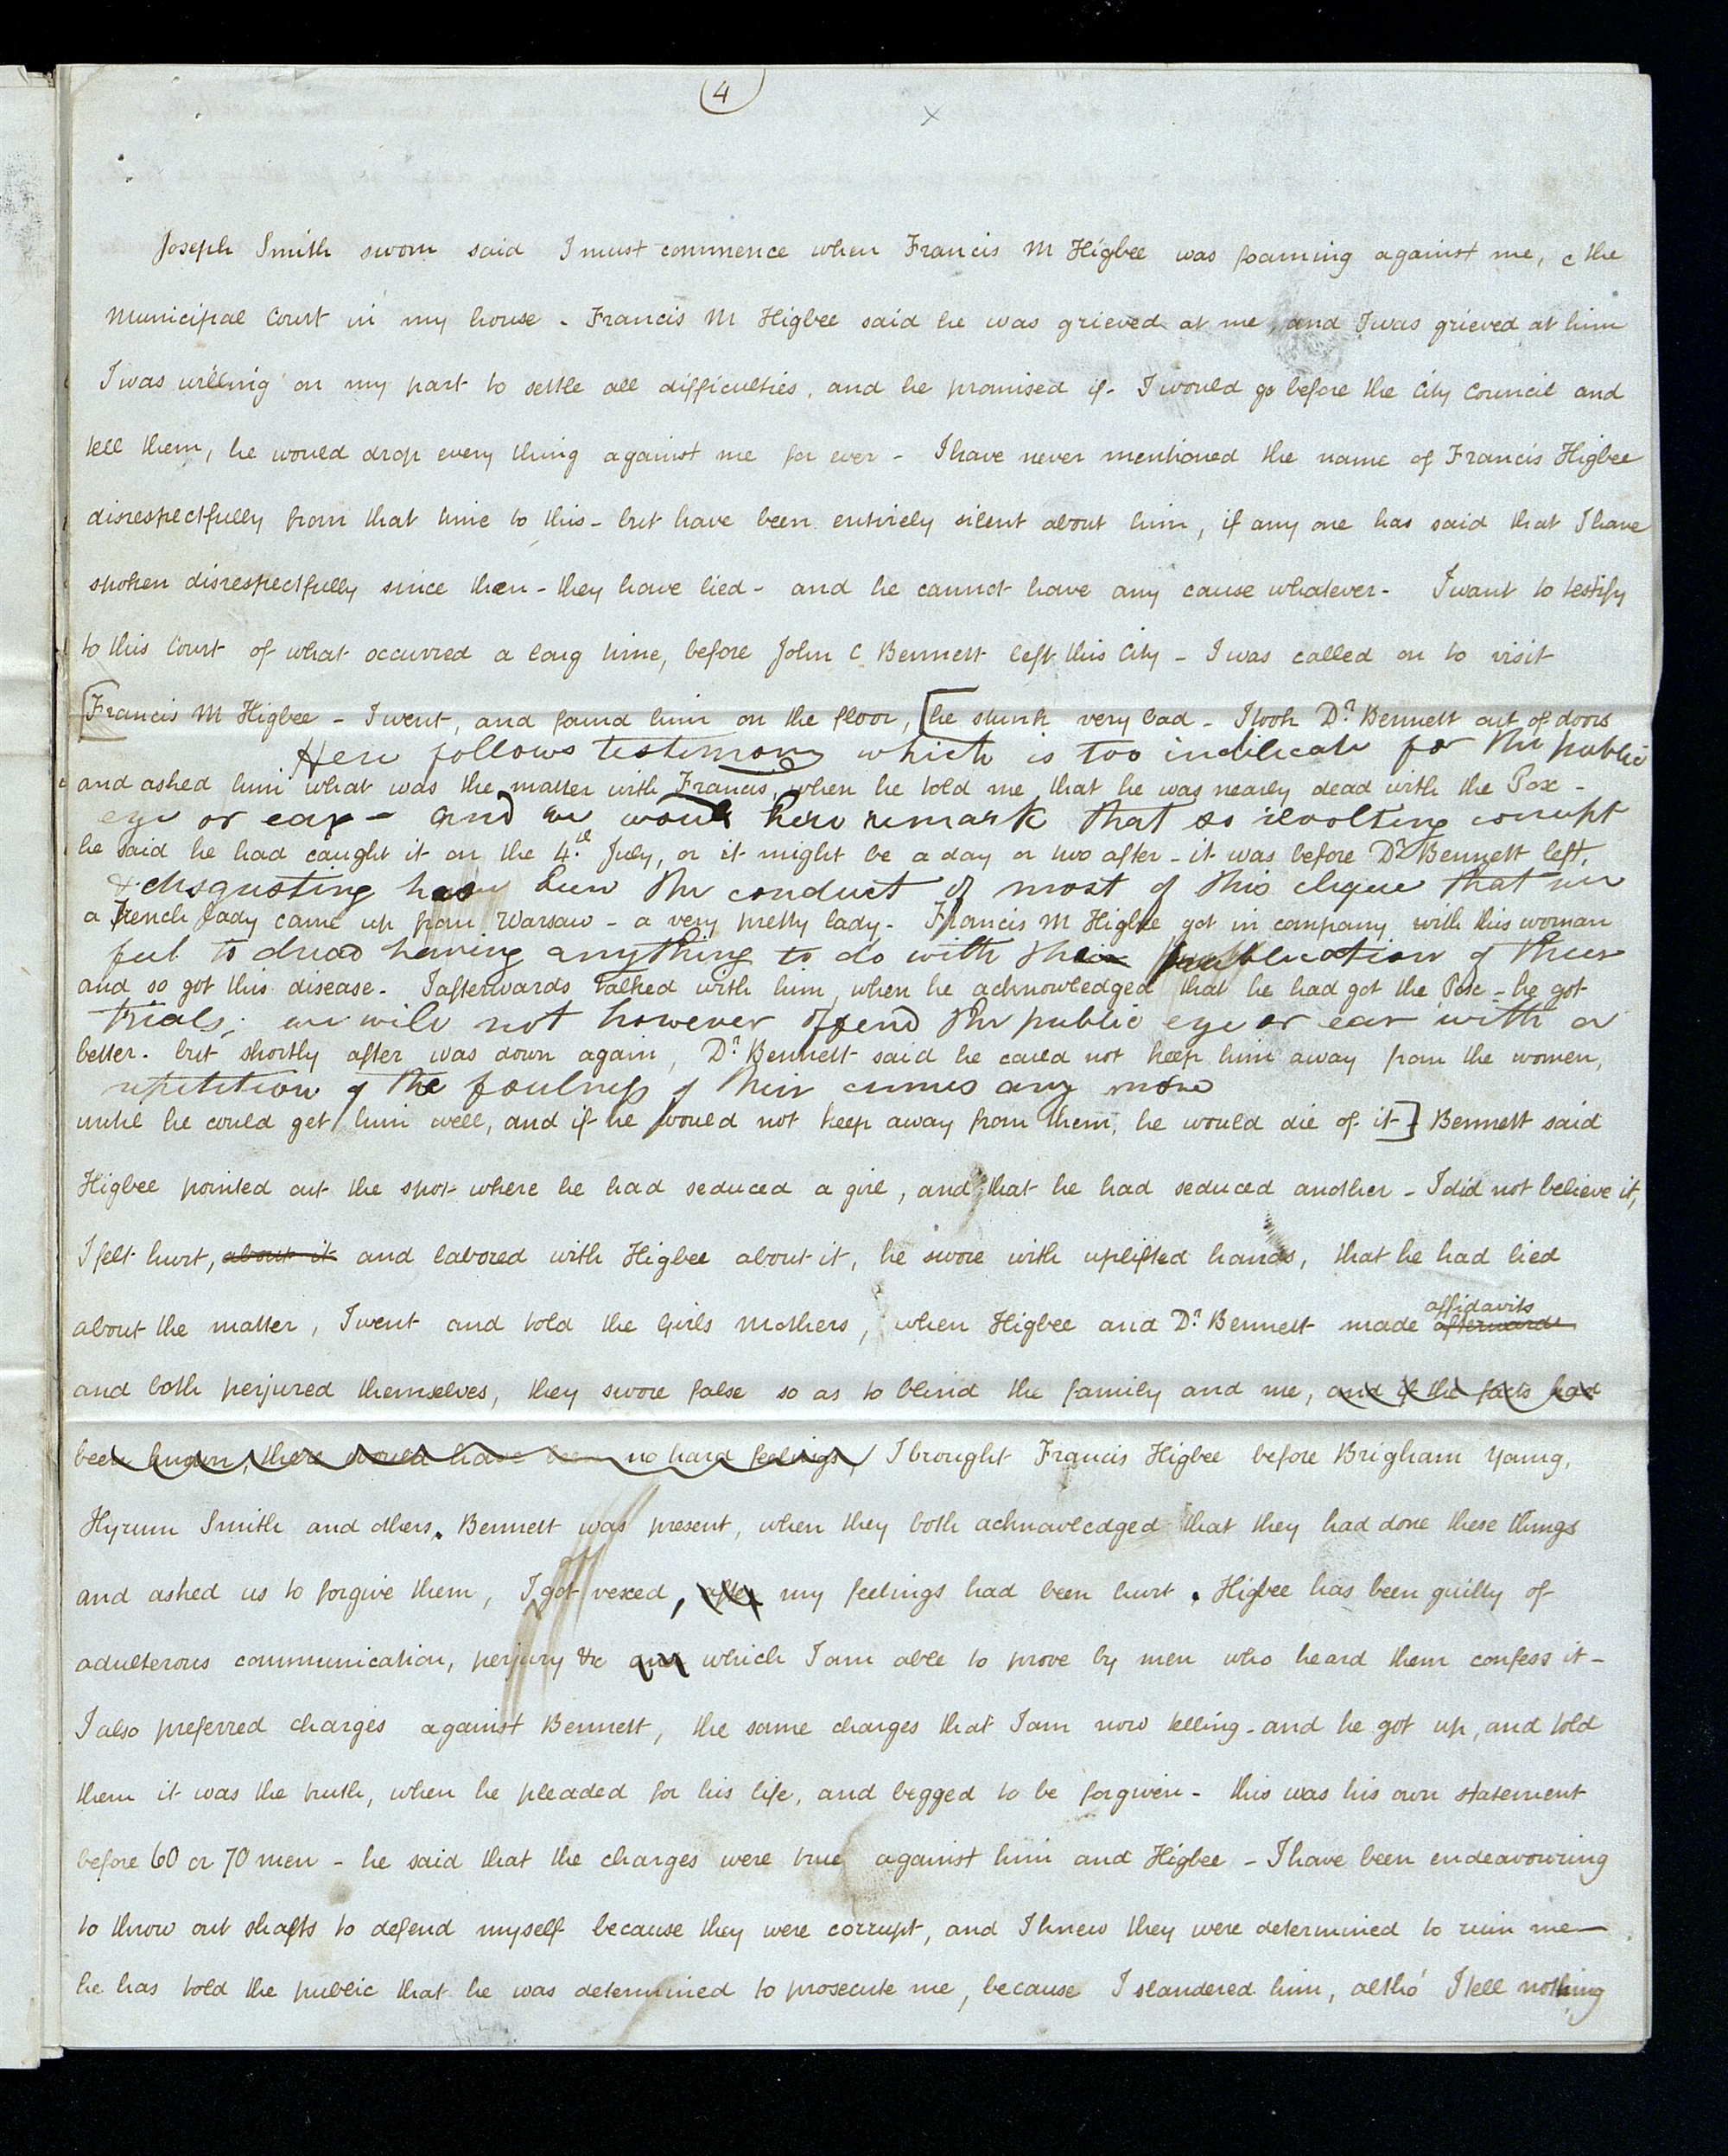 4
Joseph Smith sworn said I must commence when Francis M Higbee was foaming against me, & the
Municipal Court in my house - Francis M Higbee said he was grieved at me, and I was grieved at him
I was willing on my part to settle all difficulties, and he promised if I would go before the City Council and
tell them, he would drop every thing against me for ever - I have never mentioned the name of Francis Higbee
disrespectfully from that time to this - but have been entirely silent about him, if any one has said that I have
spoken disrespectfully since then - they have lied - and he cannot have any cause whatever - I want to testify
to this Court of what occurred a long time, before John C Bennett left this City - I was called on to visit
[Francis M Higbee - I went, and found him on the floor, [he stunk very bad - I took Dr. Bennett out of doors
Here follows testimony which is too indelicate for the public
and asked him what was the matter with Francis, when he told me that he was nearly dead with the Pox -
eye or ear - and we would here remark that so revolting corrupt
he said he had caught it on the 4th. July, or it might be a day or two after - it was before Dr. Bennett left,
& disgusting has been the conduct of most of this clique that we
a French lady came up from Warsaw - a very pretty lady - Francis M Higbee got in company with this woman
feel to dread having anything to do with the publication of their
and so got this disease - I afterwards talked with him, when he acknowledged that he had got the Pox - he got
trials; we will not however offend the public eye or ear with a
better - but shortly after was down again, Dr. Bennett said he could not keep him away from the women,
repetition of the foulness of their crimes any more
until he could get him well, and if he would not keep away from them, he would die of it -] Bennett said
Higbee pointed out the spot where he had seduced a girl, and that he had seduced another - I did not believe it,
I felt hurt, about it and labored with Higbee about it, he swore with uplifted hands, that he had lied
about the matter, I went and told the Girls Mothers, when Higbee and Dr. Bennett made afterwards affidavits
and both perjured themselves, they swore false so as to blind the family and me, and if the facts had
been known, there would have been no hard feelings, I brought Francis Higbee before Brigham Young,
Hyrum Smith and others. Bennett was present, when they both acknowledged that they had done these things
and asked us to forgive them, I got vexed, after my feelings had been hurt. Higbee has been guilty of
adulterous communication, perjury &c and which I am able to prove by men who heard them confess it -
I also preferred charges against Bennett, the same charges that I am now telling - and he got up, and told
them it was the truth, when he pleaded for his life, and begged to be forgiven - this was his own statement
before 60 or 70 men - he said that the charges were true against him and Higbee - I have been endeavouring
to throw out shafts to defend myself because they were corrupt, and I knew they were determined to ruin me -
he has told the public that he was determined to prosecute me, because I slandered him, altho' I tell nothing